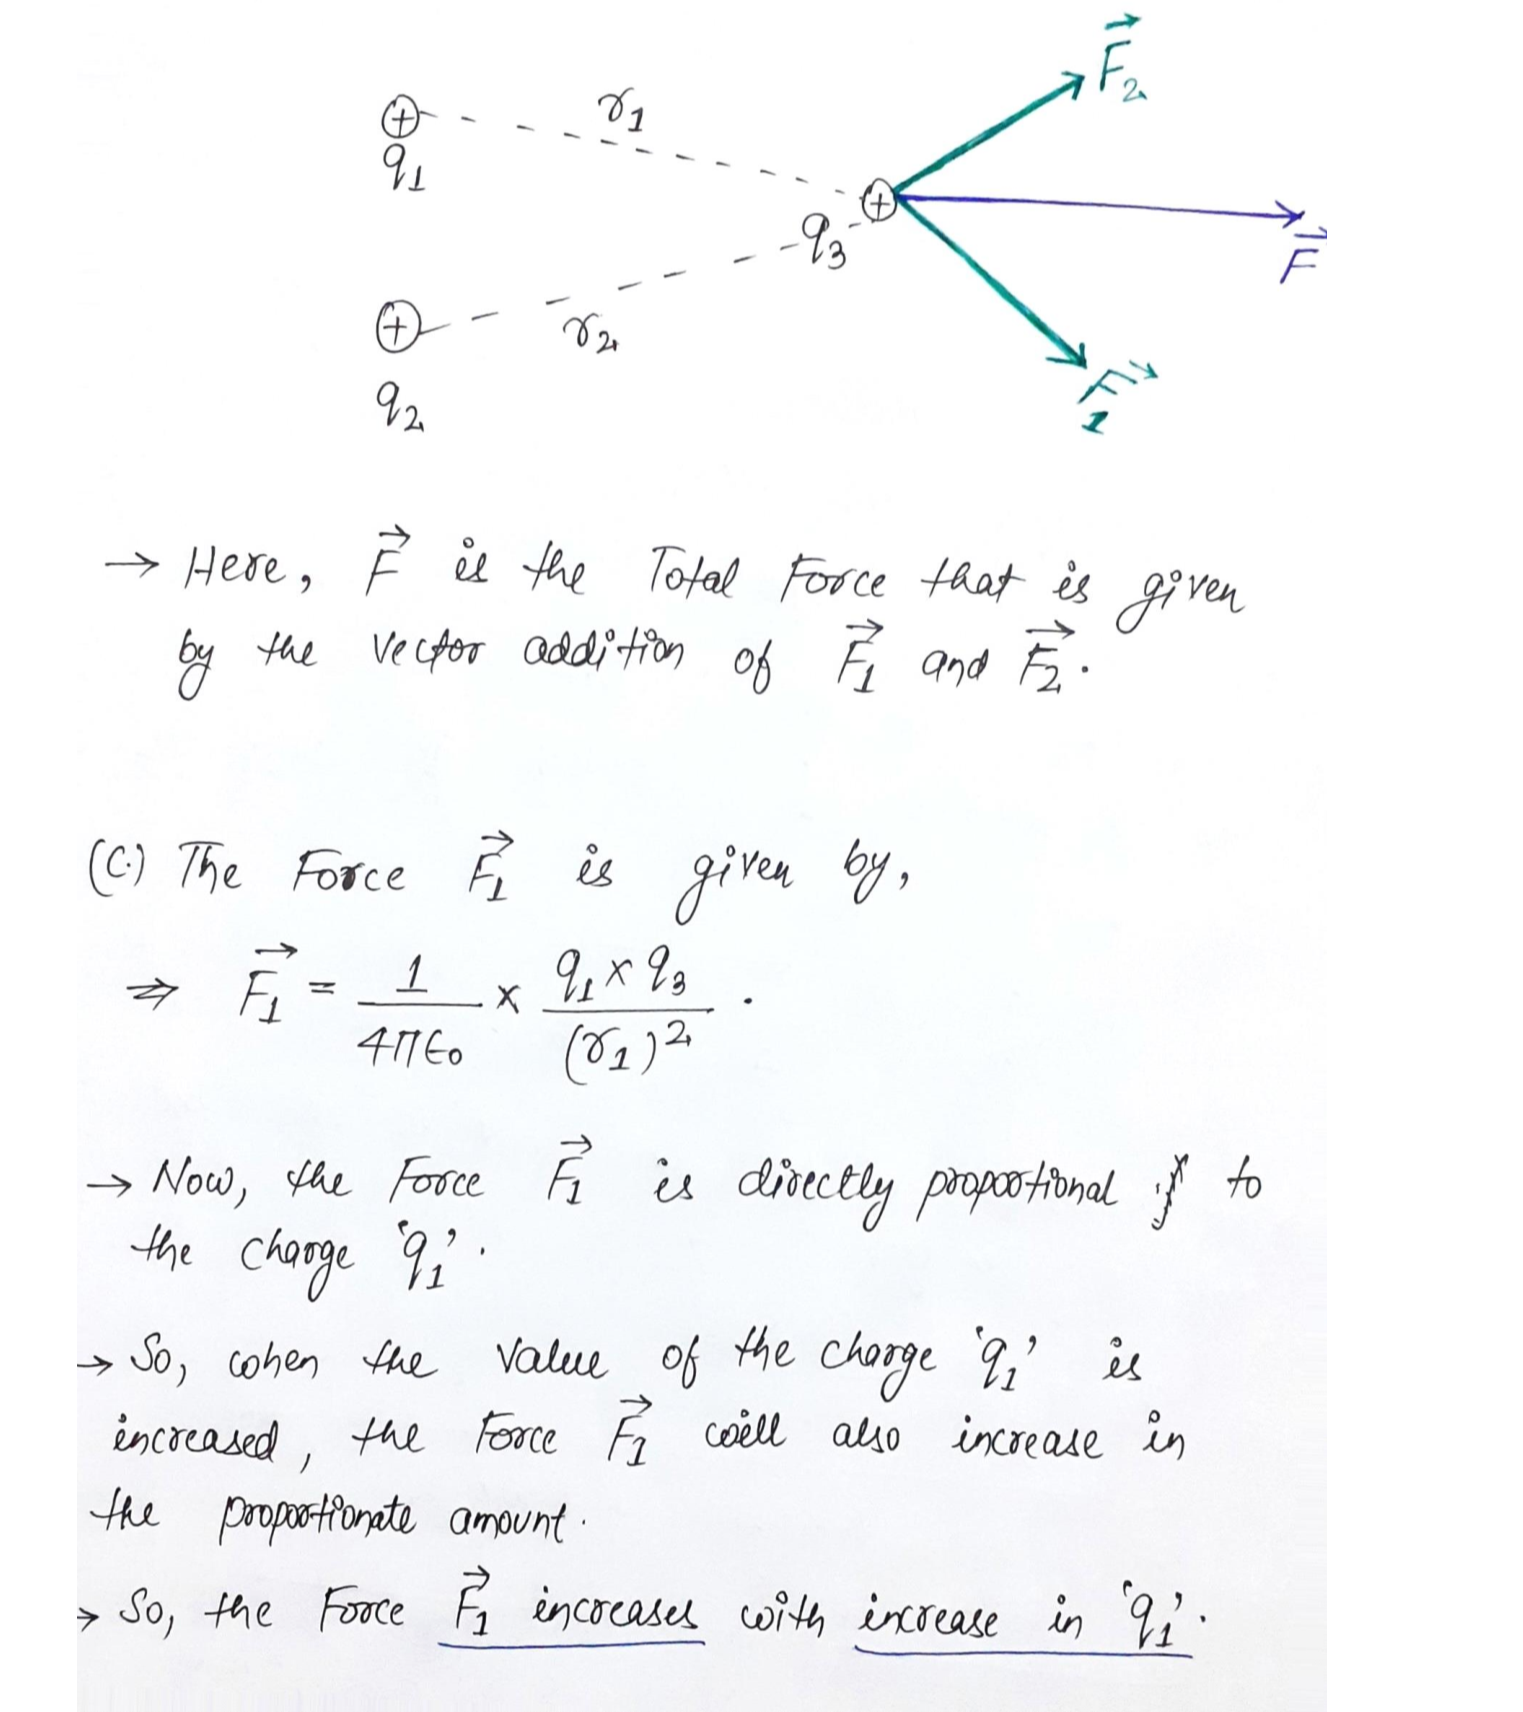 F₂
r₁
q₁
q₃
F
r₂
q₂
F₁
→ Here, F⃗ is the Total Force that is given
by the vector addition of F⃗₁ and F⃗₂.
(C.) The Force F⃗₁ is given by,
⇒ F⃗₁ = 1/4πε₀ × q₁×q₃/(r₁)² .
→ Now, the Force F⃗₁ is directly proportional to
the charge ‘q₁’.
→ So, when the value of the charge ‘q₁’ is
increased, the Force F⃗₁ will also increase in
the proportionate amount.
→ So, the Force F⃗₁ increases with increase in ‘q₁’.